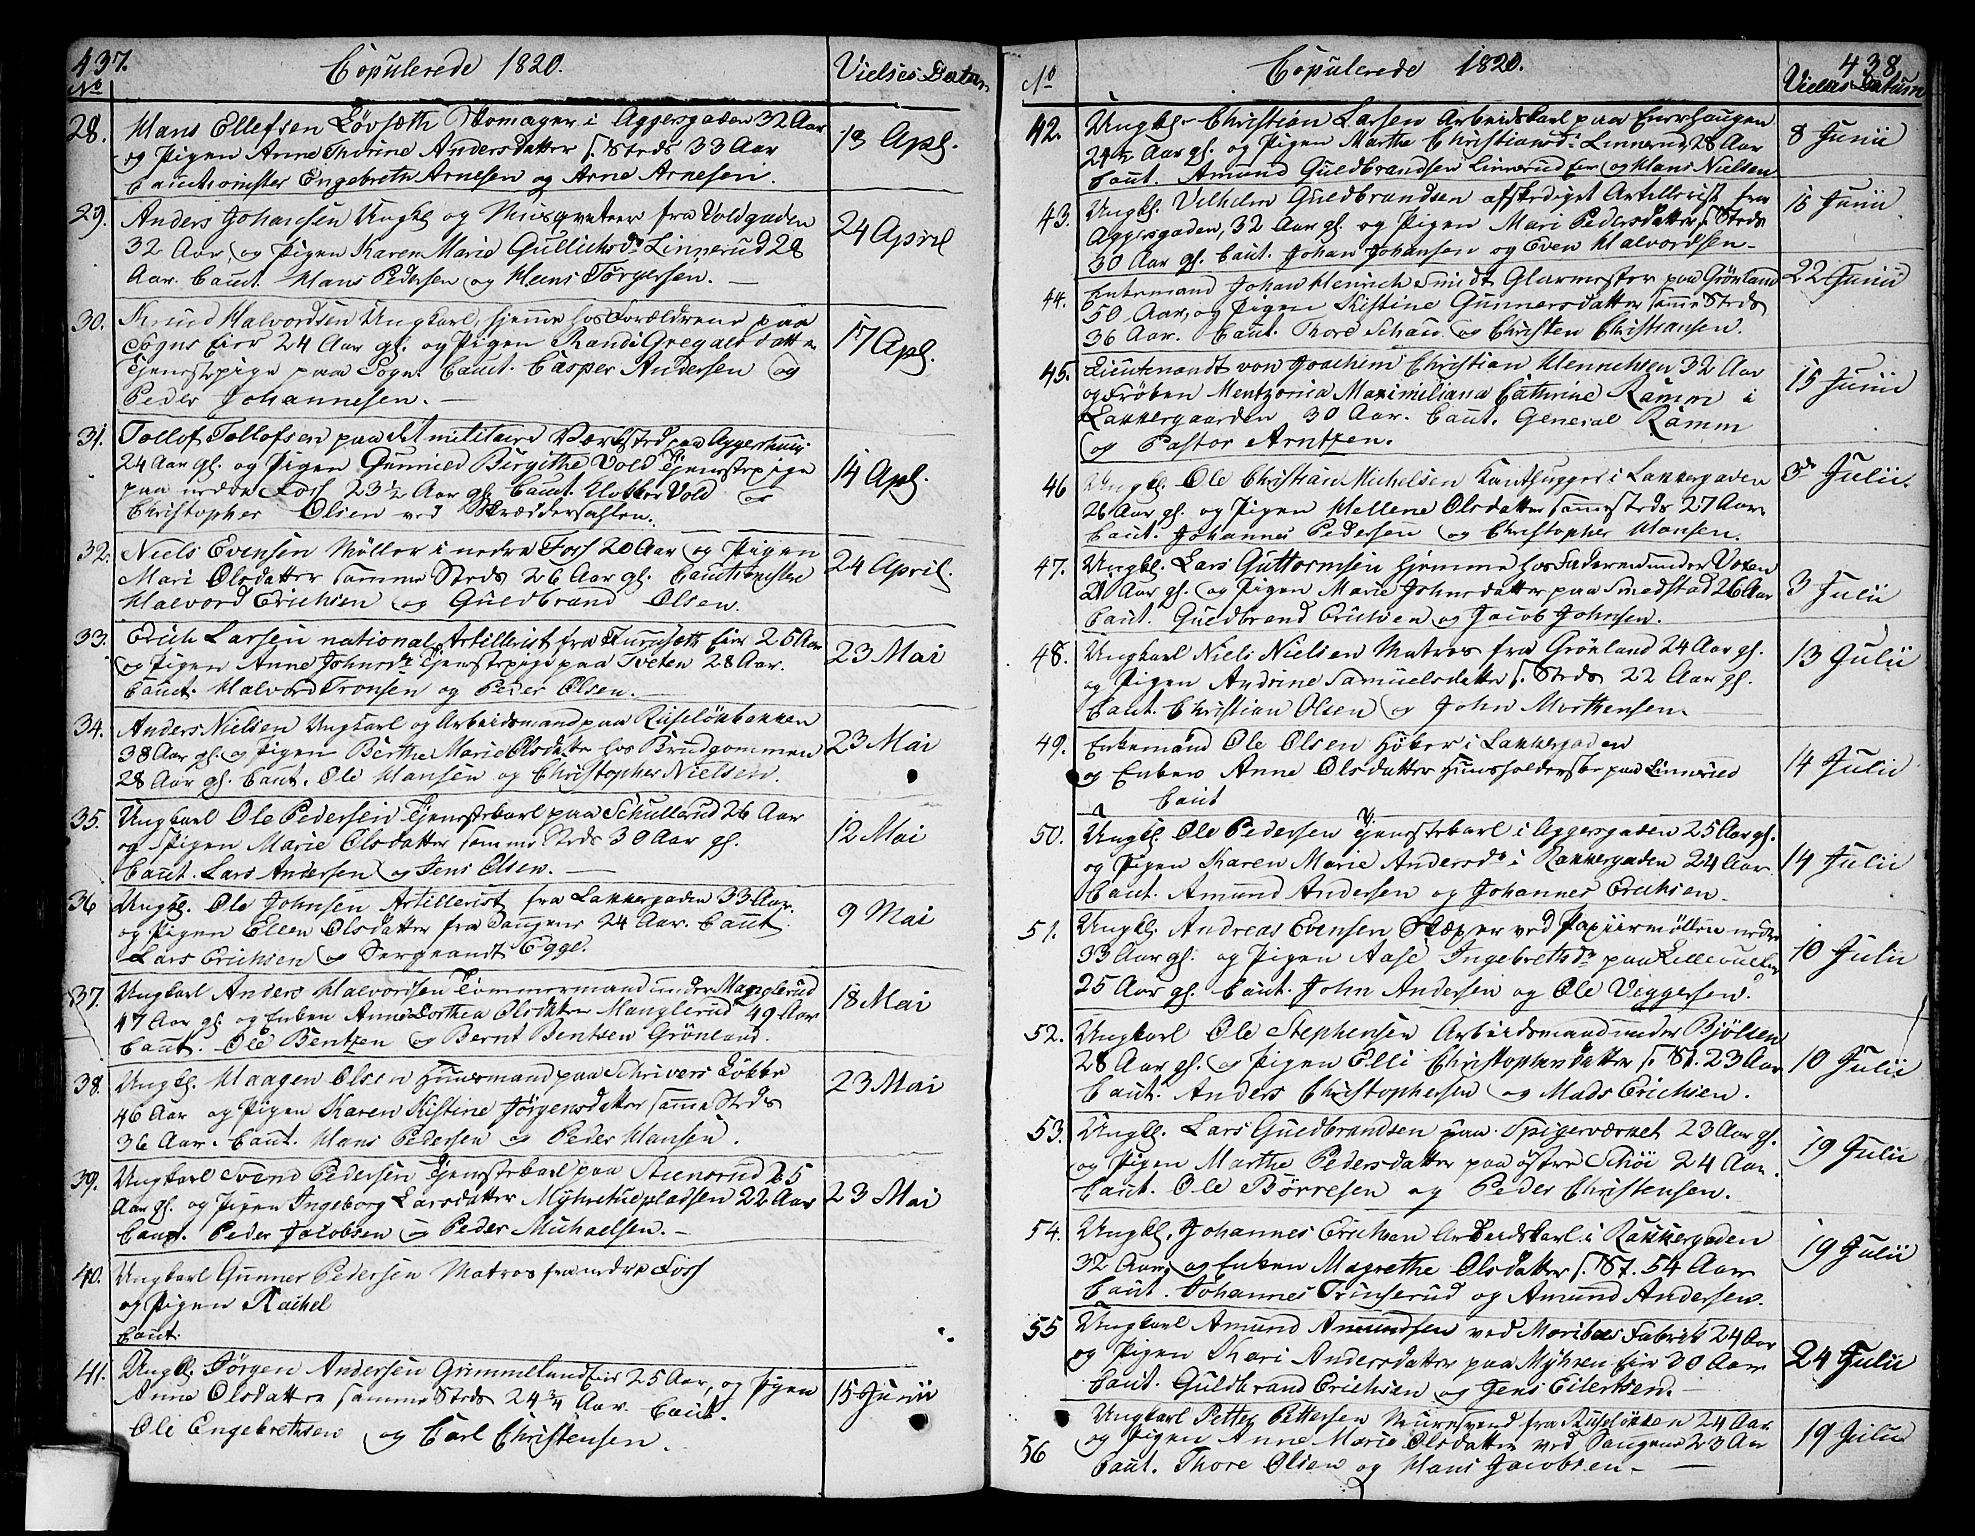 437.
Copulerede 1820.
Vielses Datum
No
28. Hans Ellefsen Lövsæth Skomager i Aggersgaden 32 Aar
og Pigen Anne Thorine Andersdatter s. Steds 33 Aar
Cautionister Engebreth Arnesen og Arne Arnesen.
13 Apl.
29. Anders Johansen Ungkl og Musqveteer fra Voldgaden
32 Aar og Pigen Karen Marie Gullichsdr Linnerud 28
Aar. Caut. Hans Pedersen og Hans Torgersen.
24 April
30. Knud Halvordsen Ungkarl, hjemme hos Forældrene paa
Sogns Eier 24 Aar gl. og Pigen Randi Gregersdatter
Tjenestepige paa Sogn. Caut. Casper Andersen og
Peder Johannesen.
17 Apl.
31. Tollof Tollofsen paa det militaire Værksted paa Aggershuus
24 Aar gl. og Pigen Gunnild Birgithe Vold Tjenestepige
paa nedre Foss 23 1/2 Aar gl. Caut. Klokker Vold og
Christopher Olsen ved Skræddersaften.
14 Apl.
32. Niels Evensen Møller i nedre Foss 20 Aar og Pigen
Mari Olsdatter samme Steds 26 Aar gl. Cautionister
Halvord Erichsen og Guldbrand Olsen.
24 April
33. Erich Larsen national Artillerist fra Furusæth Eier 25 Aar
og Pigen Anne Johnsdr Tjenestepige paa Tveten 28 Aar.
Caut. Halvord Tronsen og Peder Olsen.
23 Mai
34. Anders Nielsen Ungkarl og Arbeidsmand paa Ruseløkbakken
38 Aar gl. og Pigen Berthe Marie Olsdatter hos Brudgommen
28 Aar gl. Caut. Ole Hansen og Christopher Nielsen.
23 Mai
35. Ungkarl Ole Pedersen Tjenestekarl paa Schullerud 26 Aar
og Pigen Marie Olsdatter samme Steds 30 Aar gl.
Caut. Lars Andersen og Jens Olsen.
12 Mai
36 Ungkl. Ole Johnsen Artillerist fra Lakkergaden 33 Aar.
og Pigen Ellen Olsdatter fra Saugene 24 Aar. Caut.
Lars Erichsen og Sergeandt Egge.
9 Mai
37. Ungkarl Anders Halvorsen Tømmermand under Manglerud
47 Aar gl. og Enken Anne Dorthea Olsdatter Manglerud 49 Aar
Caut. Ole Bentzen og Bernt Bentsen Grönland.
18 Mai
38. Ungkl. Haagen Olsen Huusmand paa Schrivers Løkke
46 Aar og Pigen Karen Kistine Jörgensdatter samme Steds
36 Aar. Caut. Hans Pedersen og Peder Hansen.
23 Mai
39. Ungkarl Svend Pedersen Tjenestekarl paa Steensrud 25
Aar gl. og Pigen Ingeborg Larsdatter Myhretuepladsen 22 Aar
Caut. Peder Jacobsen og Peder Michaelsen.
23 Mai
40. Ungkarl Gunner Pedersen Matros fra nedre Foss
og Pigen Rachel
Caut.
41. Ungkl Jörgen Andersen Grimmelund Eier 25 Aar, og Pigen
Anne Olsdatter samme Steds 24 3/4 Aar. Caut.
Ole Engebrethsen og Carl Christensen.
15 Junii
438
No
Copulerede 1820.
Vielses Datum
42. Ungkl. Christian Larsen Arbeidskarl paa Enerhaugen
24 1/2 Aar gl. og Pigen Marthe Christiansdr Linnerud 28 Aar
Caut. Amund Guldbrandsen Linnerud Eier og Hans Nielsen
8 Junii
43. Ungkl. Vilhelm Guldbrandsen afskediget Artillerist fra
Aggersgaden, 32 Aar gl. og Pigen Mari Pedersdatter s. Steds
30 Aar gl. Caut. Johan Johansen og Even Halvordsen
16 Junii
44. Enkemand Johan Henrich Smidt Glarmester paa Grönland
50 Aar, og Pigen Kistine Gunnersdatter samme Steds
36 Aar. Caut. Thore Schau og Christen Christiansen.
22 Junii
45. Lieutenandt von Joachim Christian Hennichsen 32 Aar
og Frøken Mentzonia Maximiliana Cathrine Ramm i
Lakkergaarden 30 Aar. Caut. General Ramm
og Pastor Arntzen.
15 Junii
46 Ungkl. Ole Christian Michelsen Kanthugger i Lakkergaden
26 Aar gl. og Pigen Hellene Olsdatter sammesteds 27 Aar
Caut. Johannes Pedersen og Christopher Hansen.
3de Julii.
47. Ungkl. Lars Guttormsen hjemme hos Faderen under Voxen
21 Aar gl. og Pigen Marie Johnsdatter paa Smedstad 26 Aar
Caut. Guldbrand Erichsen og Jacob Johnsen.
3 Julii
48. Ungkarl Niels Nielsen Matros fra Grönland 24 Aar gl.
og Pigen Andrine Samuelsdatter s. Steds 22 Aar gl.
Caut. Christian Olsen og John Morthensen.
13 Julii
49. Enkemand Ole Olsen Höker i Lakkergaden
og Enken Anne Olsdatter Huusholderske paa Linnerud
Caut
14 Julii
50. Ungkl. Ole Pedersen Tjenestekarl i Aggersgaden 25 Aar gl.
og Pigen Karen Marie Andersdr i Rakkergaden 24 Aar
Caut. Amund Andersen og Johannes Erichsen.
14 Julii
51. Ungkl. Andreas Evensen Skaper ved Papiirmöllen nedre
33 Aar gl. og Pigen Aase Ingebrethsdr paa Lillevacker
25 Aar gl. Caut. John Andersen og Ole Viggersen.
10 Julii
52. Ungkarl Ole Stephensen Arbeidsmand under Bjölsen
28 Aar gl. og Pigen Elli Christophersdatter s. St. 23 Aar
Caut. Anders Christophersen og Mads Erichsen.
10 Julii
53. Ungkl. Lars Guldbrandsen paa Spigerværket 23 Aar gl.
og Pigen Marthe Pedersdatter paa östre Schöi 24 Aar.
Caut. Ole Börresen og Peder Christensen.
19 Julii
54. Ungkl. Johannes Erichsen Arbeidskarl i Rakkergaden
32 Aar, og Enken Magrethe Olsdatter s. St. 54 Aar
Caut. Johannes Trinserud og Amund Andersen.
19 Julii
55 Ungkarl Amund Amundsen ved Moribes Fabrik 24 Aar
og Pigen Mari Andersdatter paa Myhren Eier 30 Aar
Caut. Guldbrand Erichsen og Jens Eilertsen.
24 Julii
56 Ungkarl Petter Pettersen Muursvend fra Ruseløkken 24 Aar
og Pigen Anne Marie Olsdatter ved Saugene 23 Aar
Caut. Thore Olsen og Hans Jacobsen
19 Julii